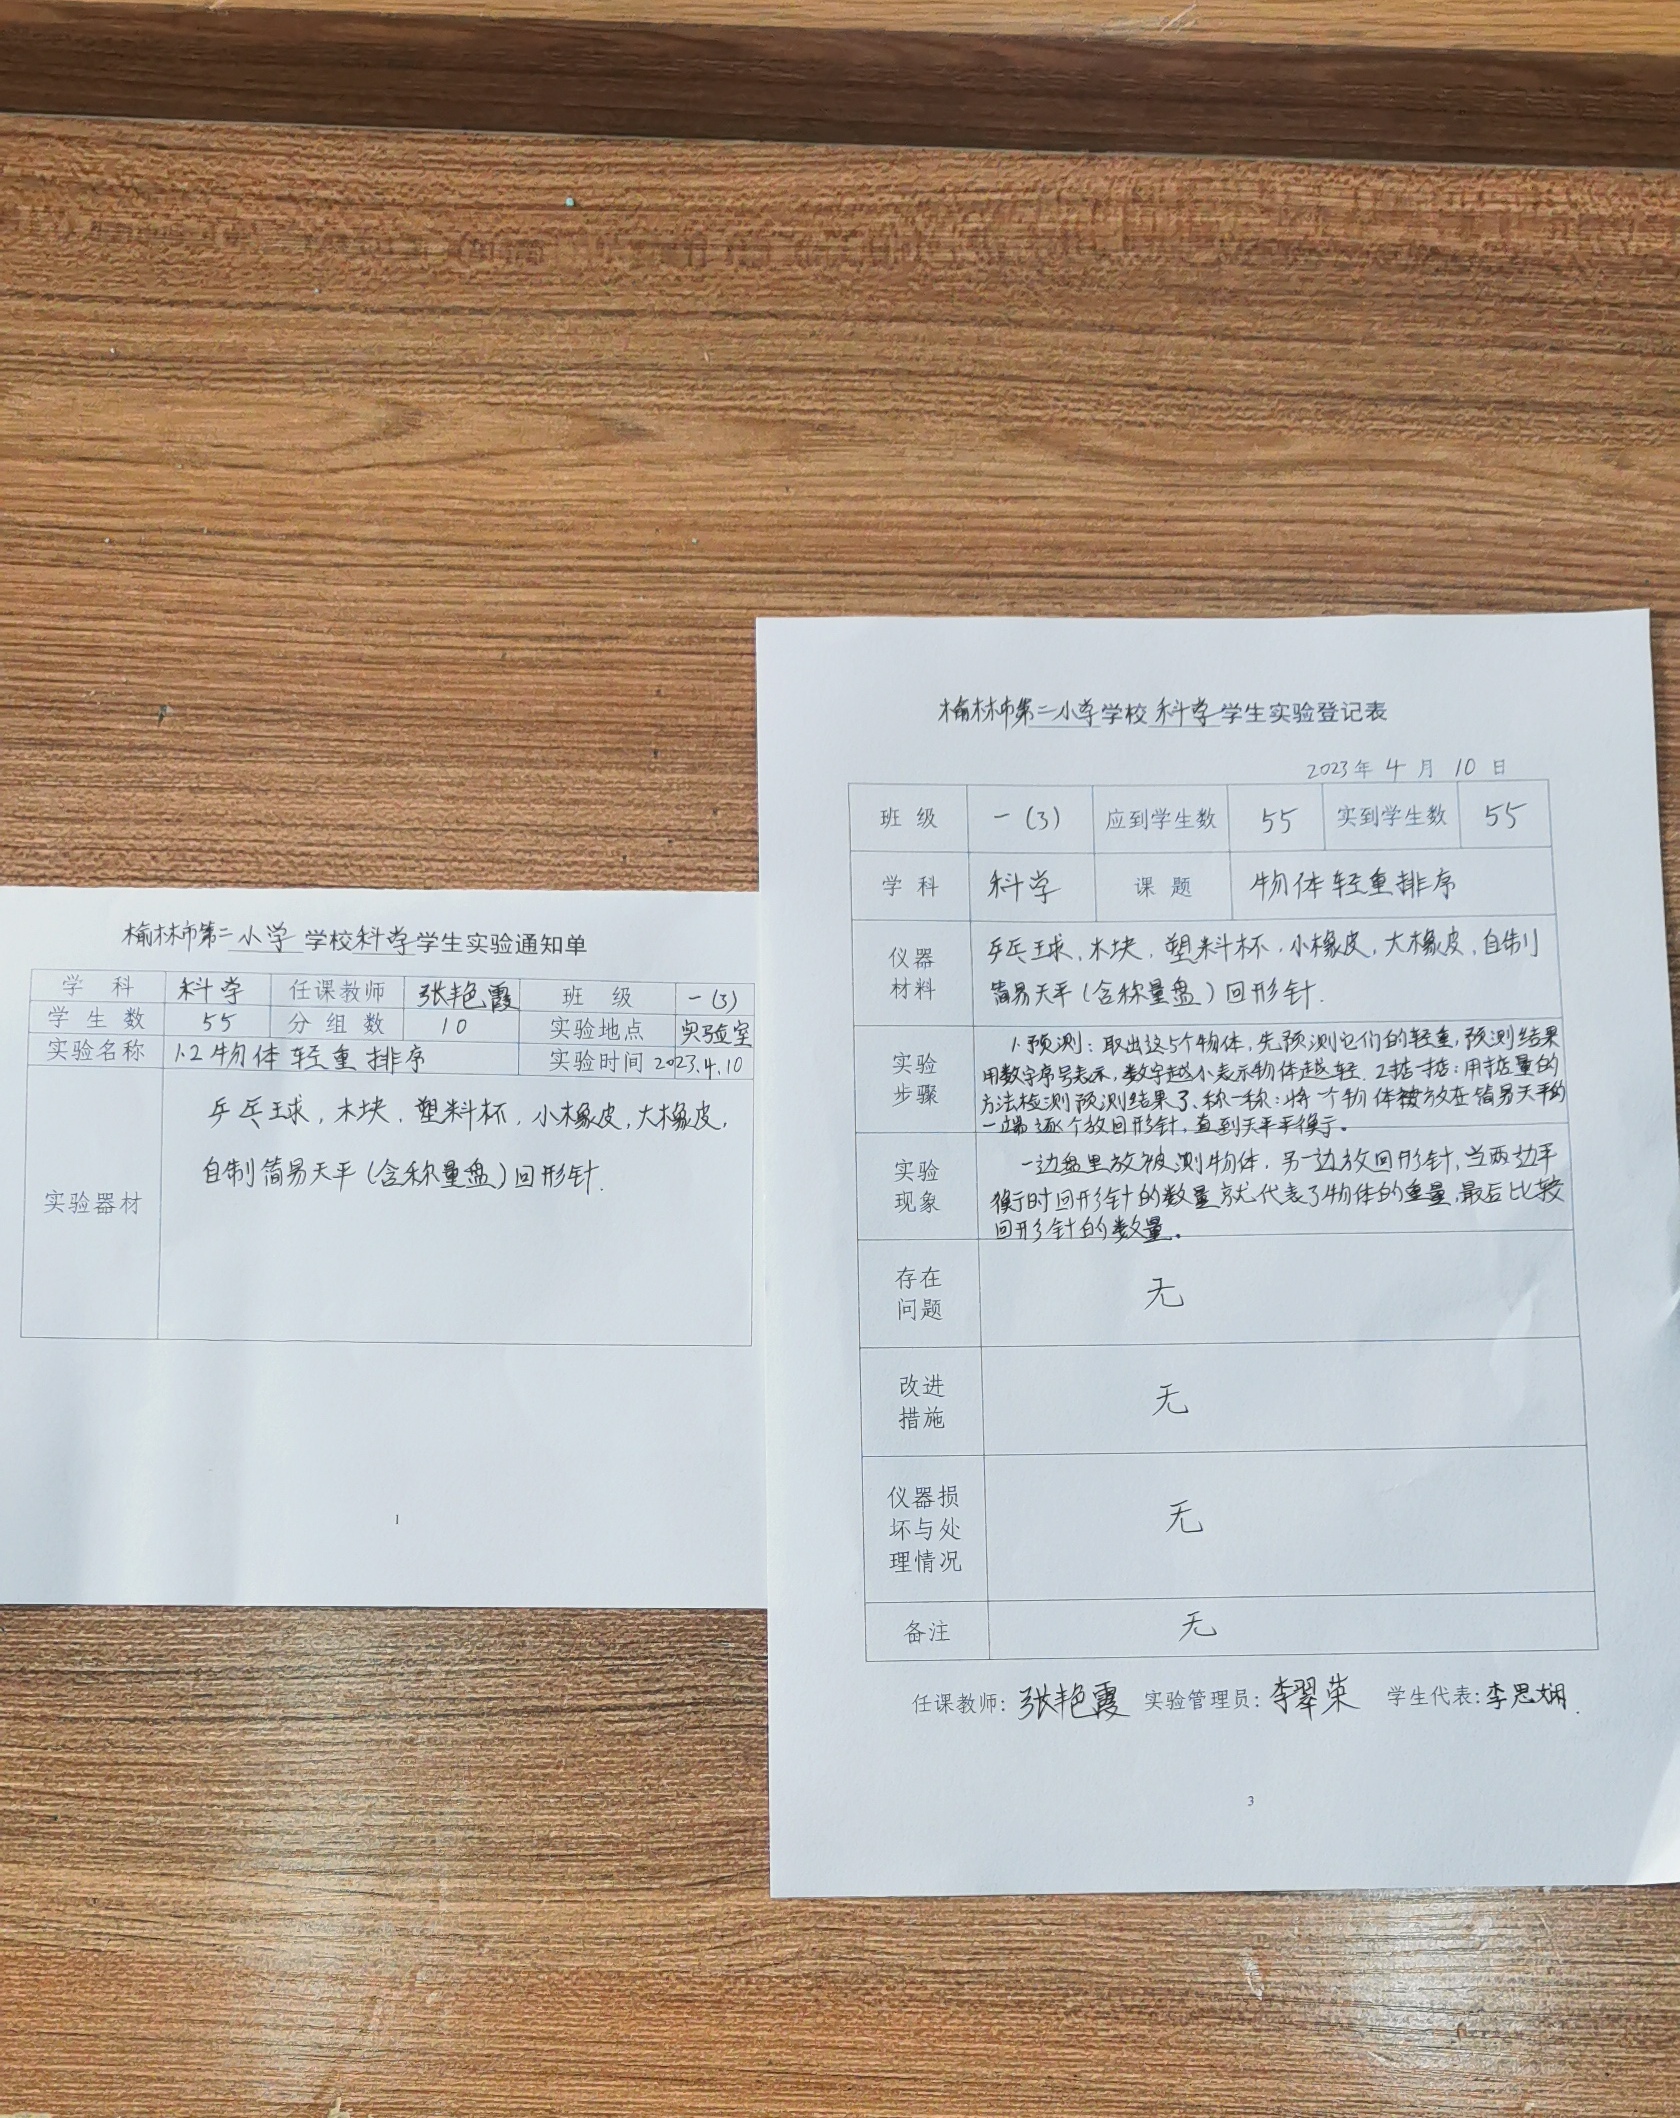 榆林市第二小学学校科学学生实验通知单
学科 科学 任课教师 张艳霞 班级 一(3)
学生数 55 分组数 10 实验地点 实验室
实验名称 1.2物体轻重排序 实验时间 2023.4.10
实验器材
乒乓球,木块.塑料杯,小橡皮,大橡皮,
自制简易天平(含称量盘)回形针.
1
榆林市第二小学学校科学学生实验登记表
2023年4月10日
班级 一(3) 应到学生数 55 实到学生数 55
学科 科学 课题 物体轻重排序
仪器
材料
乒乓球,木块.塑料杯.小橡皮,大橡皮,自制
简易天平(含称量盘)回形针.
实验
步骤
1.预测:取出这5个物体,先预测它们的轻重,预测结果
用数字序号表示,数字越小表示物体越轻.2掂一掂:用掂量的
方法检测预测结果3、称一称:将一个物体被放在简易天平的
一端逐个放回形针,直到天平平衡。
实验
现象
一边盘里放被测物体,另一边放回形针,当两边平
衡时回形针的数量就代表了物体的重量,最后比较
回形针的数量。
存在
问题
无
改进
措施
无
仪器损
坏与处
理情况
无
备注 无
任课教师:张艳霞 实验管理员:李翠荣 学生代表:李思娴.
3